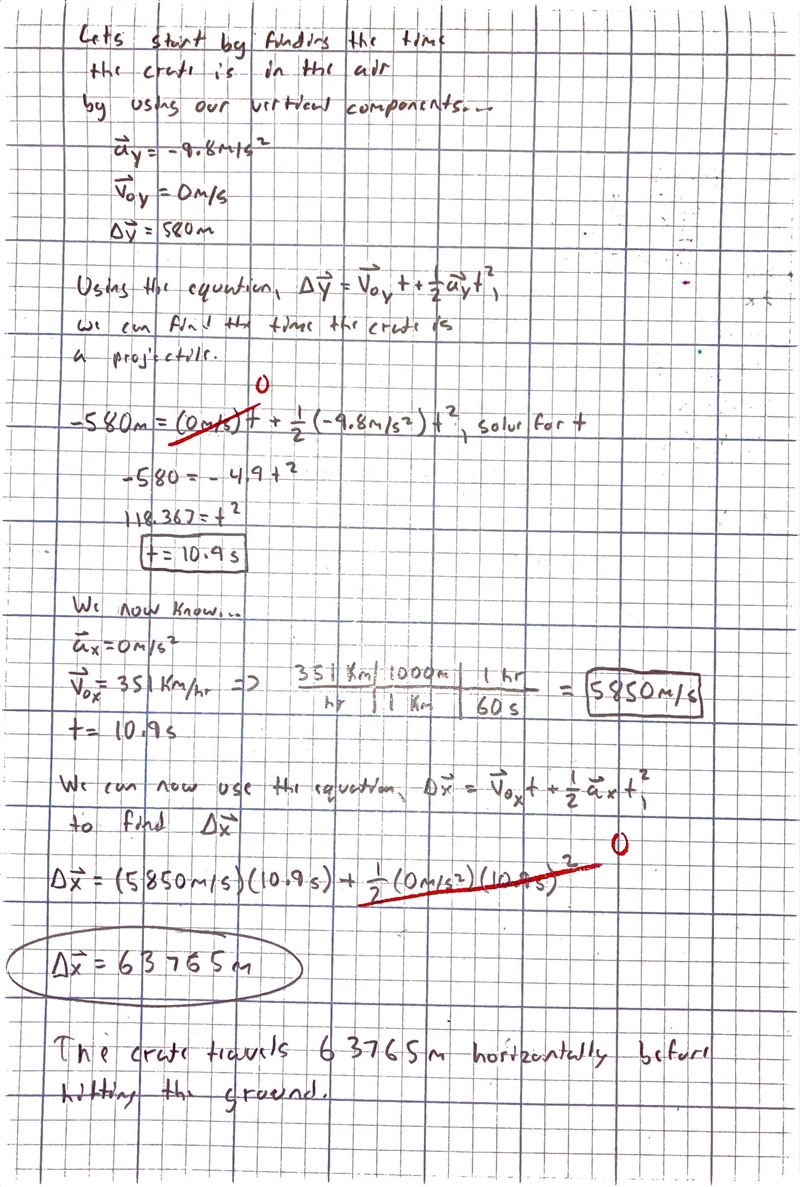 Let's start by finding the time
the crate is in the air
by using our vertical components...
a⃗y = -9.8m/s²
V⃗oy = 0m/s
Δy⃗ = 580m
Using the equation, Δy⃗ = V⃗oy t + ½ a⃗y t²,
we can find the time the crate is
a projectile.
0
-580m = (0m/s)t + ½(-9.8m/s²)t², solve for t
-580 = -4.9t²
118.367 = t²
t = 10.9s
We now know...
a⃗x = 0m/s²
V⃗ox = 351 Km/hr => 351 Km | 1000m | 1 hr = 5850m/s
hr | 1 Km | 60s
t = 10.9s
We can now use the equation, Δx⃗ = V⃗ox t + ½ a⃗x t²,
to find Δx⃗
0
Δx⃗ = (5850m/s)(10.9s) + ½(0m/s²)(10.9s)²
Δx⃗ = 63765m
The crate travels 63765m horizontally before
hitting the ground.